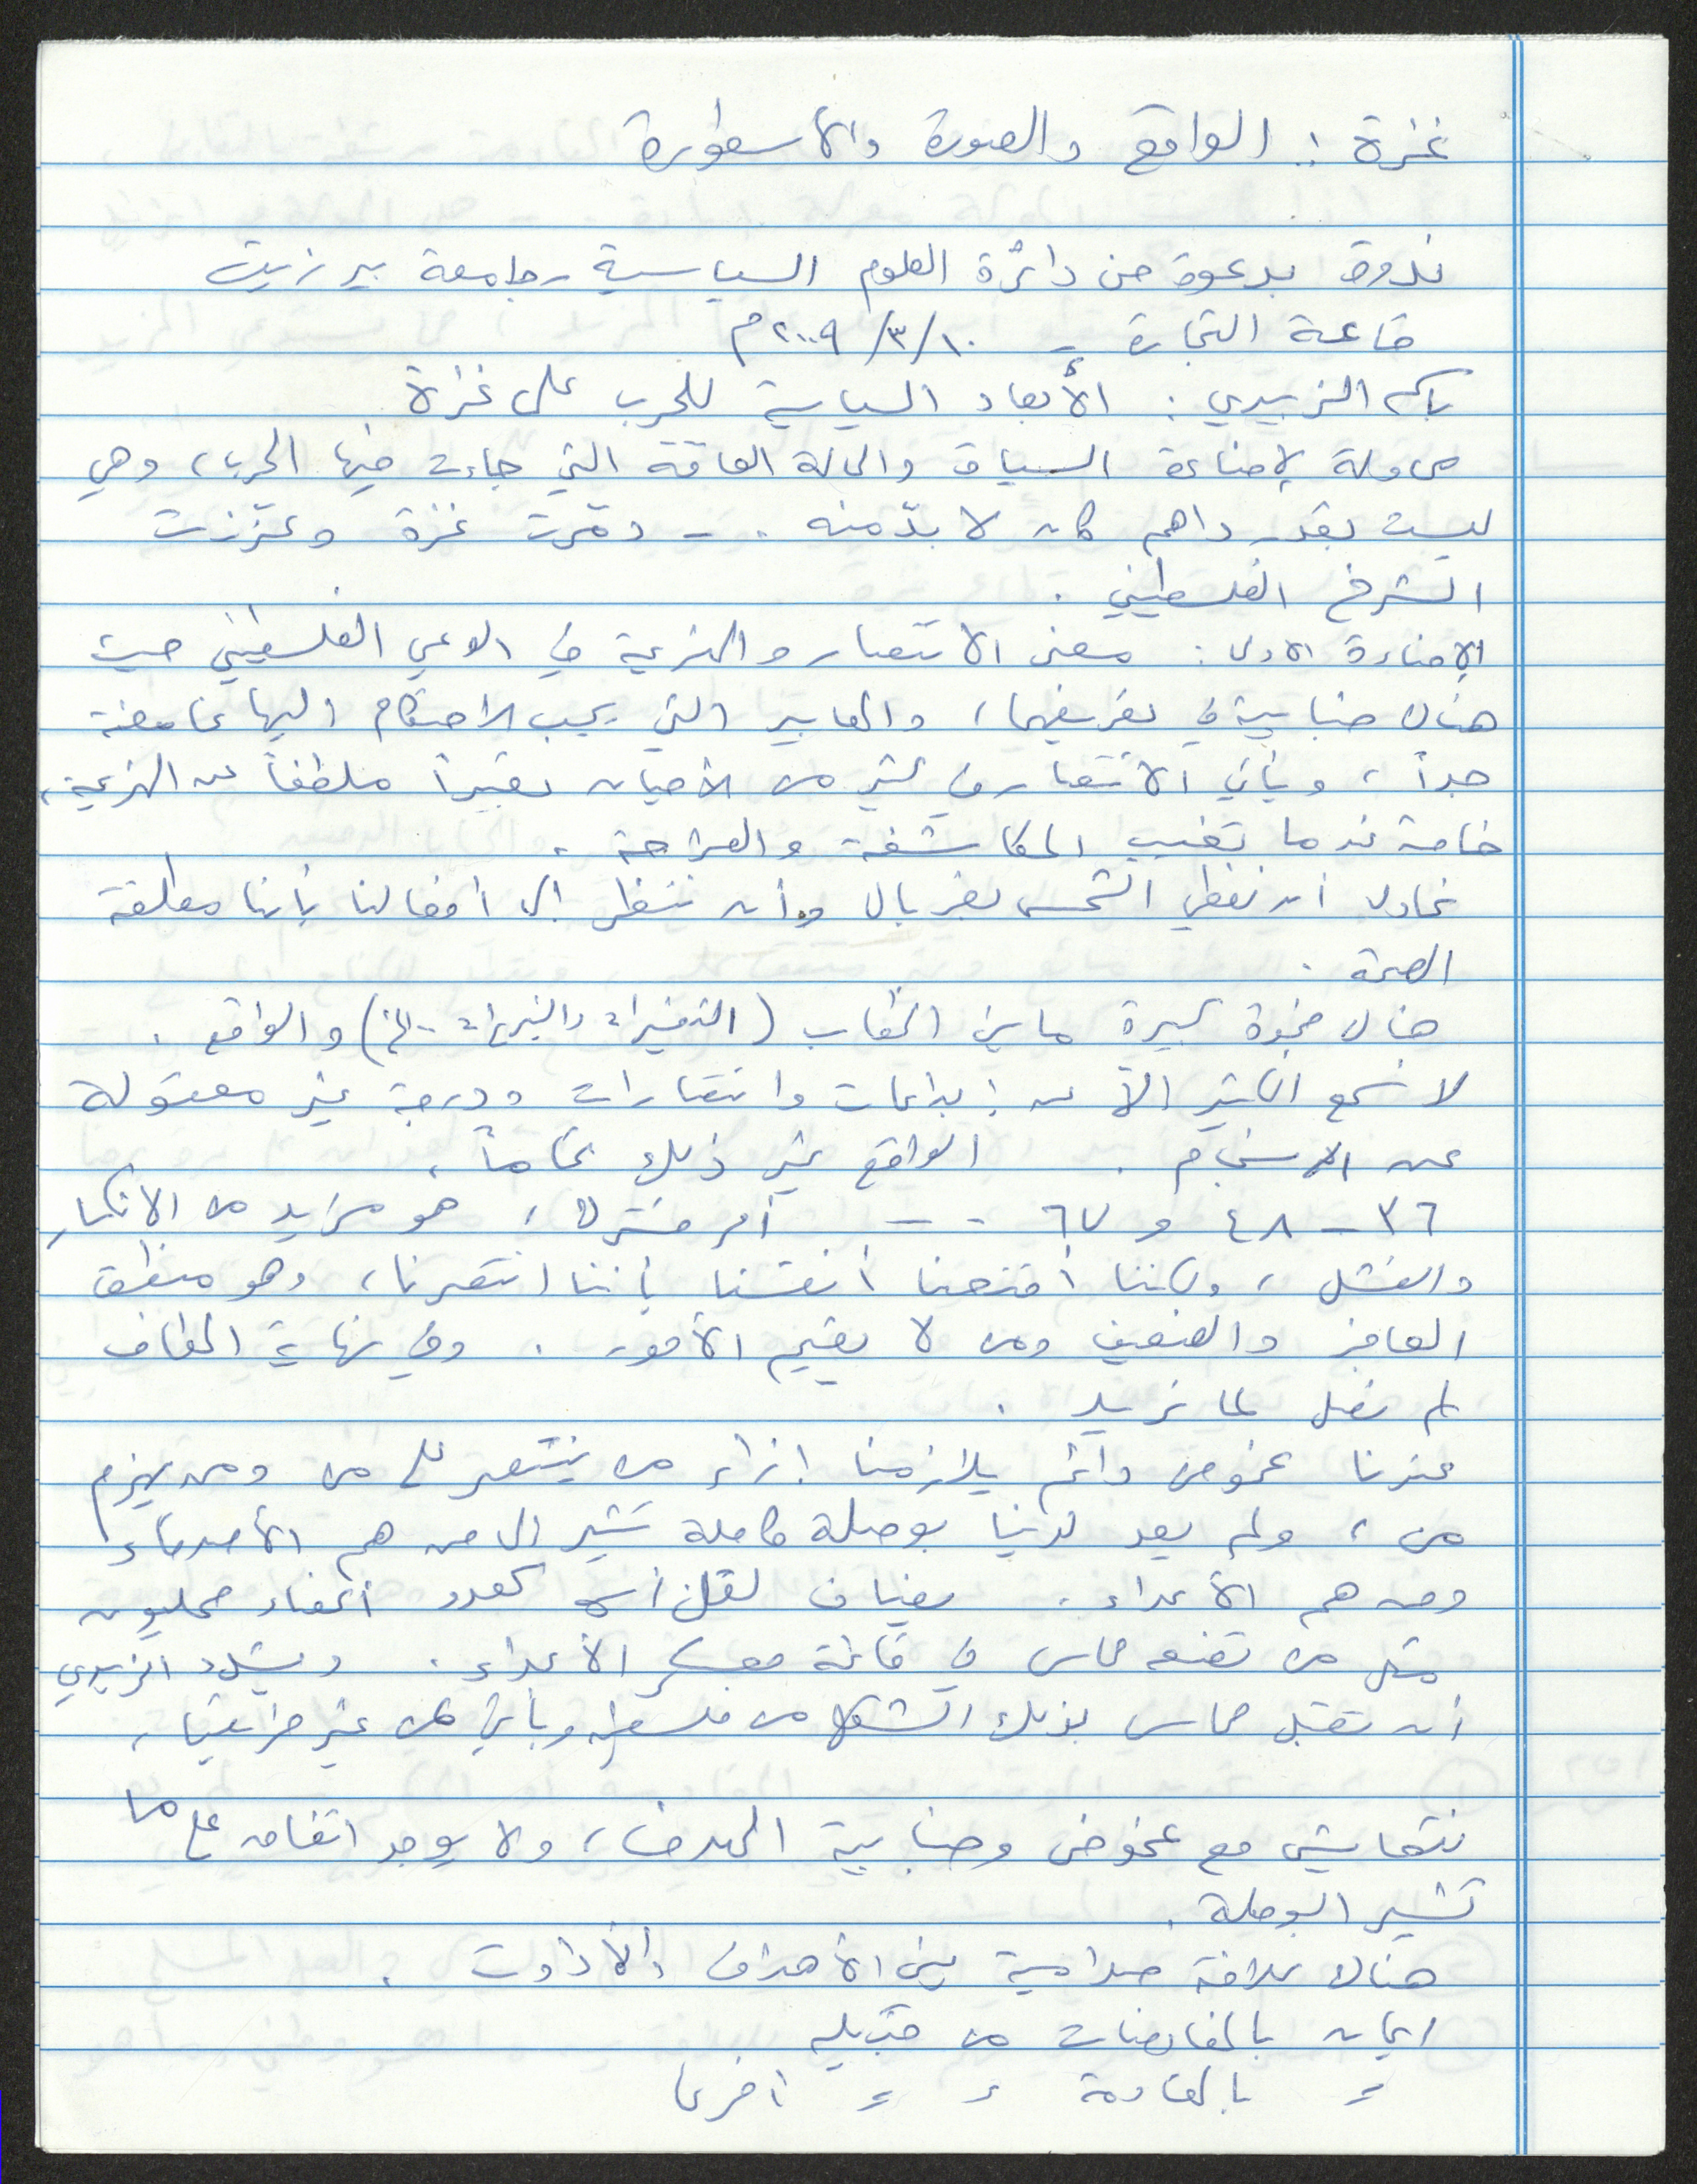 غزة : الواقع والصورة والأسطورة
ندوة بدعوة من دائرة العلوم السياسية - جامعة بير زيت
قاعة التجارة - ١٠/٣/٢٠٠٩م
باسم الزبيدي : الأبعاد السياسية للحرب على غزة
محاولة لإضاءة السياق والحالة العامة التي جاءت فيها الحرب، وهي
ليست بقدر داهم كان لا بدّ منه . - دمّرت غزة وعزّزت
الشرخ الفلسطيني .
الإضاءة الأولى : معنى الانتصار والهزيمة في الوعي الفلسطيني حيث
هناك ضبابية في تعريفهما، والمعايير التي يجب الاحتكام اليها غامضة
جداً، ويأتي الانتصار في كثير من الأحيان تعبيراً ملطفاً عن الهزيمة،
خاصة عندما تغيب المكاشفة والصراحة .
نحاول أن نغطي الشمس بغربال وأن ننظر إلى أفعالنا بأنها مطلقة
الصحة .
هناك فجوة كبيرة ما بين الخطاب (التفسيرات والتبريرات .. الخ) والواقع .
لا نسمع الكثير الاّ عن إبداعات وانتصارات ودرجة غير معقولة
من الانسجام . الواقع غير ذلك تماماً .
٣٦ - ٤٨ و ٦٧ - - - أمر مشترك، هو مزيد من الانكسار
والفشل، ولكننا أقنعنا أنفسنا بأننا انتصرنا، وهو منطق
العاجز والضعيف ومن لا يقيم الأمور . وفي نهاية المطاف
لم نصل لما نريد .
عندنا غموض دائم يلازمنا إزاء من ينتصر على من ومن يهزم
من، ولم يعد لدينا بوصلة كاملة تشير الى من هم الأصدقاء
ومن هم الأعداء . يضاف لقلق أسا كعدد أعضاء محليون
مثل من تضعه حماس في قائمة معسكر الأعداء . ويشدد الزبيدي
أن تقبل حماس بذلك الشكل من فلسطين وبأي ثمن غير جغرافيتها،
نتعايش مع غموض وضبابية الهدف، ولا يوجد اتفاق على ما
تشير البوصلة .
هناك علاقة صدامية بين الأهداف والأدوات .
إيمان بالمفاوضات من قبل
= بالمقاومة = = أخرى